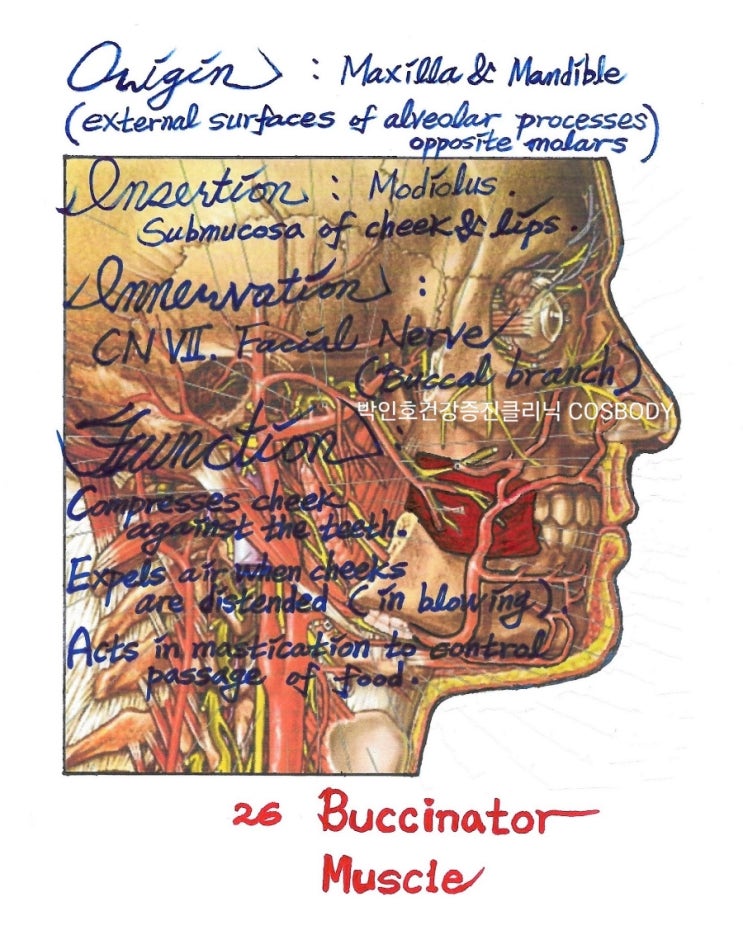 Origin : Maxilla & Mandible
(external surfaces of alveolar processes)
opposite molars
Insertion : Modiolus.
Submucosa of cheek & lips.
Innervation :
CN VII. Facial Nerve
(Buccal branch)
박인호건강증진클리닉 COSBODY
Function
Compresses cheek
against the teeth.
Expels air when cheeks
are distended (in blowing).
Acts in mastication to control
passage of food.
26 Buccinator
Muscle